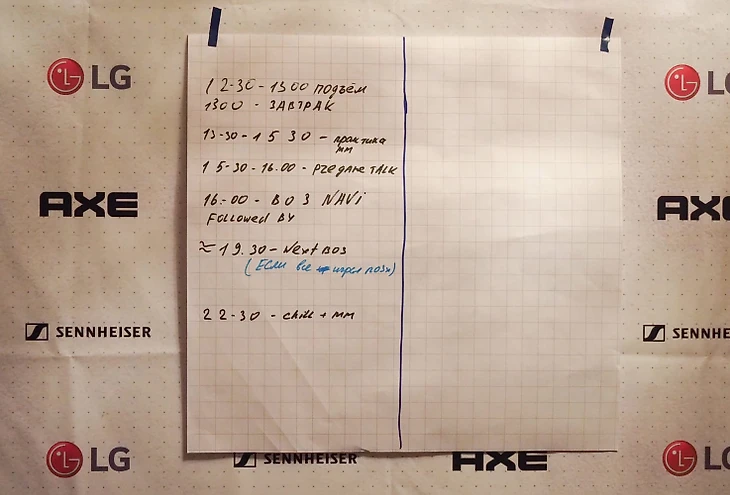 LG
LG
12-30 - 1300 подъём
1300 - ЗАВТРАК
13-30 - 15 30 - практика
мм
15-30 - 16.00 - PREGAME TALK
AXE
AXE
16.-00 - BO 3 NAVi
Followed BY
≈ 19.30 - Next BO3
(Если все игры по 3)
22-30 - chill + мм
SENNHEISER
SENNHE
LG
SENNHEISER
AXE
LG